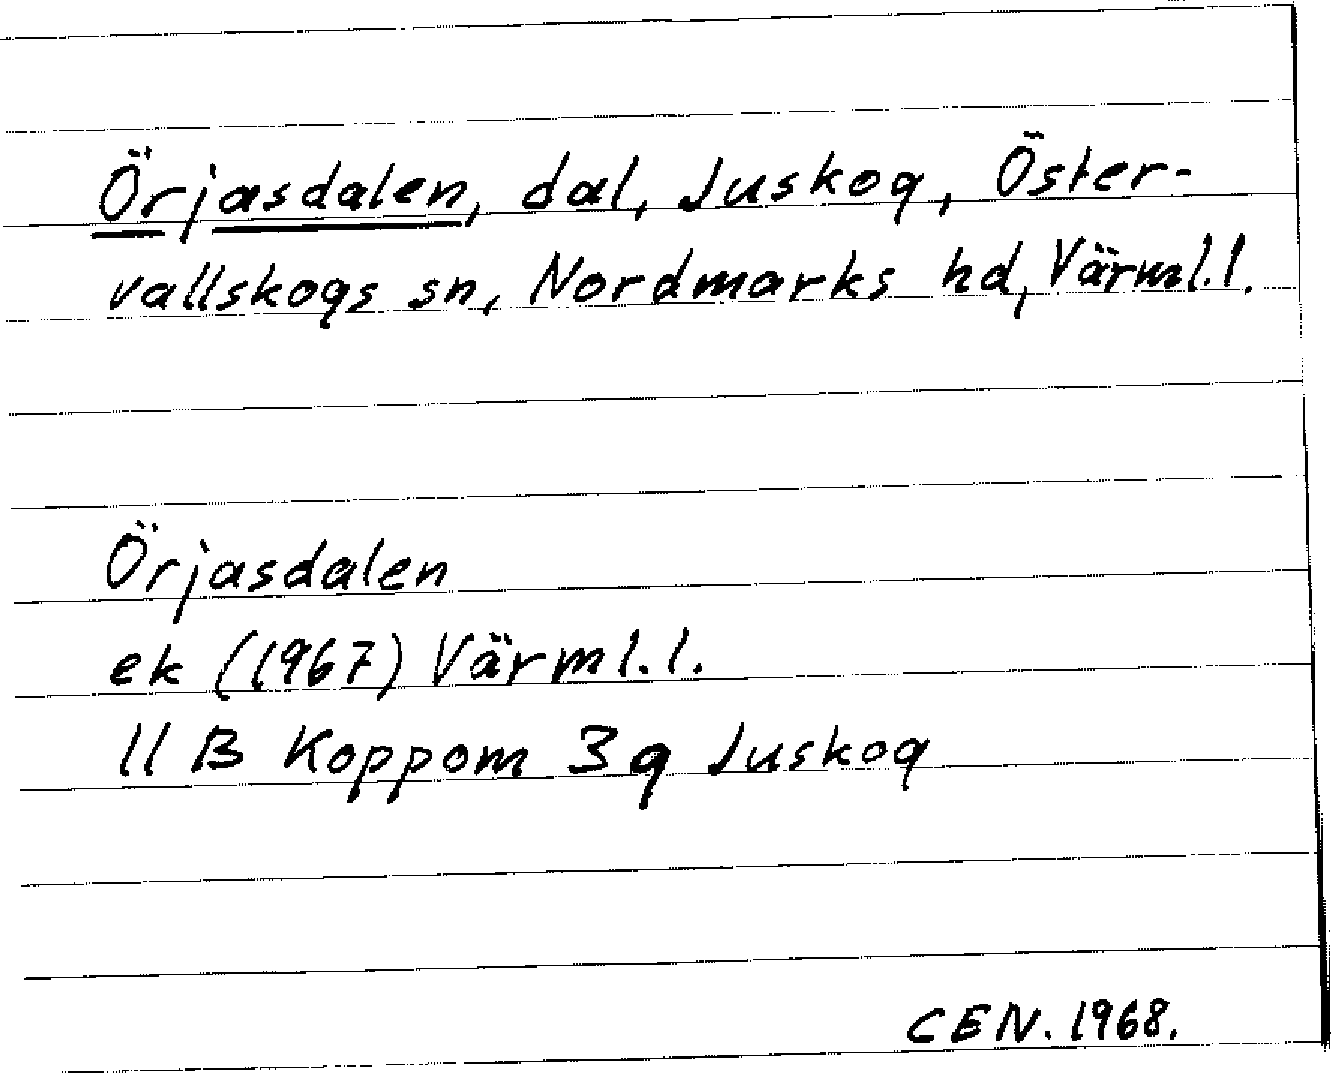 Örjasdalen, dal, Juskog, Öster-
vallskogs sn, Nordmarks hd, Värml.l.
Örjasdalen
ek (1967) Värml.l.
11 B Koppom 3g Juskog
CEN. 1968.